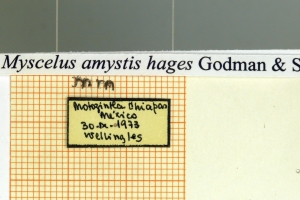 Myscelus amystis hages Godman & S
mm
Motozintla Chiapas
México
30-IX-1973
Wellingles